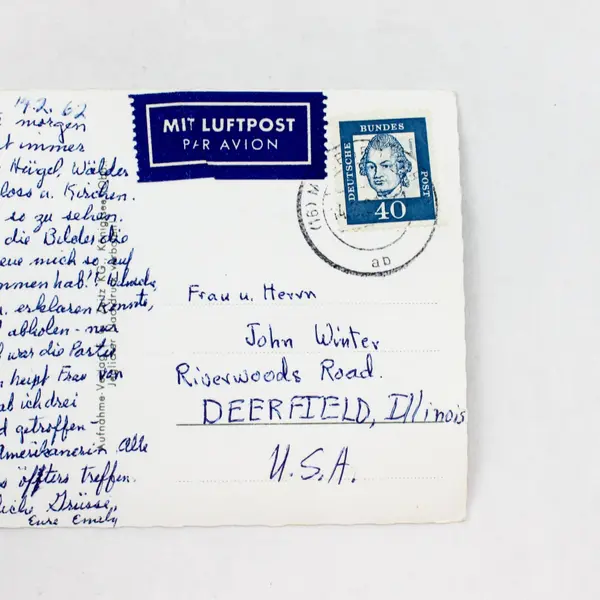 14.2.62
morgen
immer
Hügel, Wälder
loss u. Kirchen.
so zu sehen.
die Bilder die
eue mich so auf
mmen hab'!
u. erklären könnte,
abholen -
war die Partie
Frau von
ab ich drei
d getroffen -
Amerikanerin. Alle
s öffters treffen.
liche Grüsse,,
Eure Emely
Aufnahme-Verlag
MIT LUFTPOST
PAR AVION
DEUTSCHE
BUNDES
POST
40
(16)
ab
Frau u. Herrn
John Winter
Riverwoods Road.
DEERFIELD, Illinois
U.S.A.